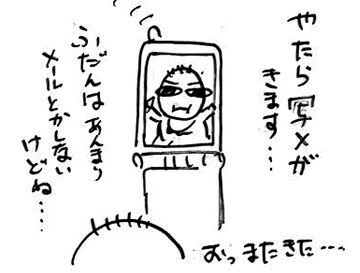 やたら写メが
きます…
ふだんはあんまり
メールとかしない
けどね…
おっまたきた…